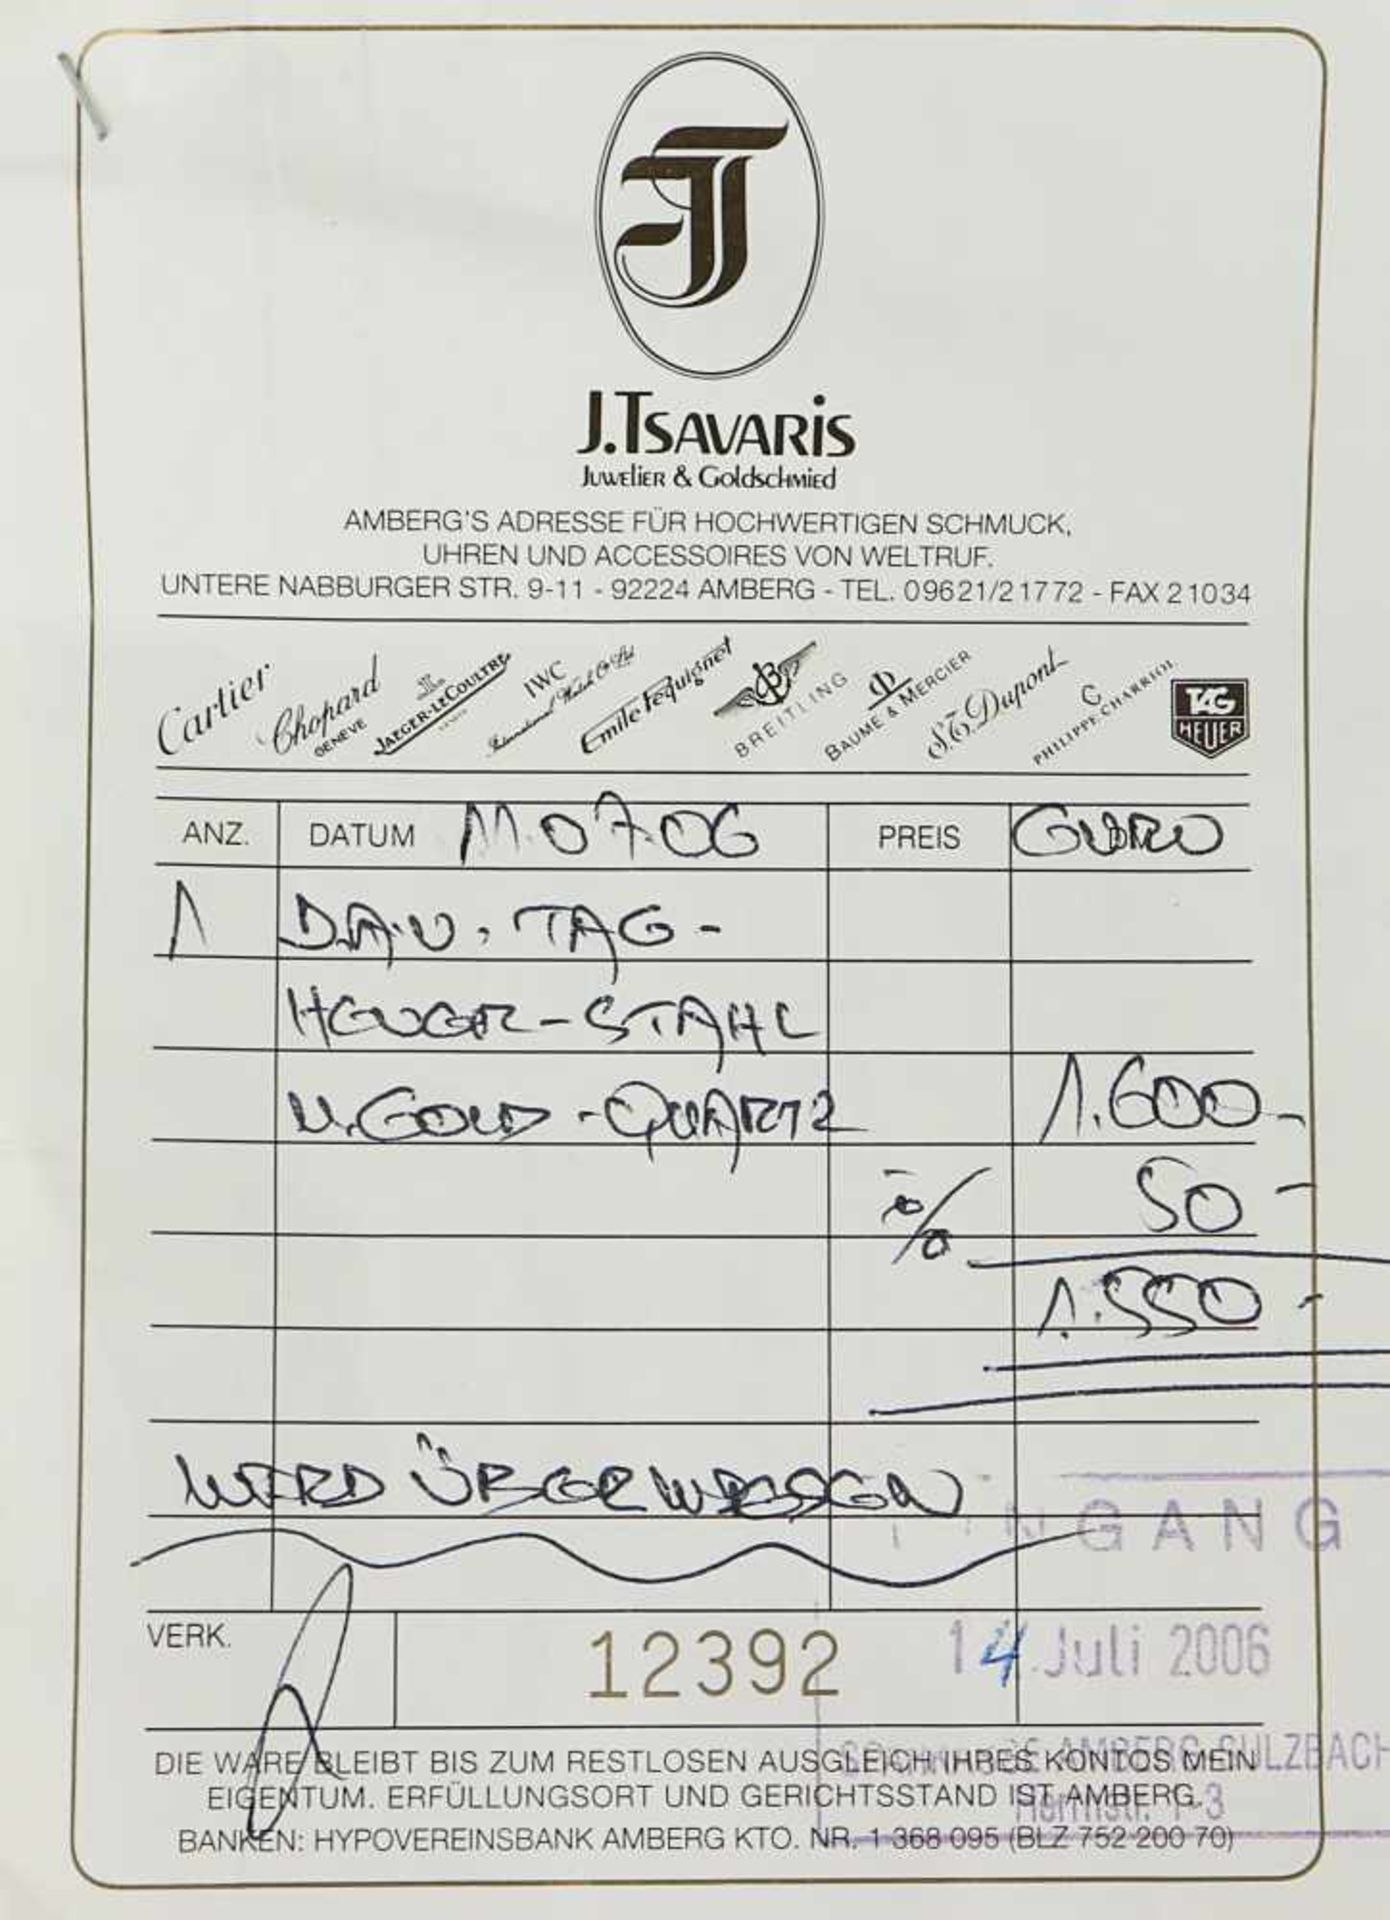 J.Tsavaris
Juwelier & Goldschmied
AMBERG'S ADRESSE FÜR HOCHWERTIGEN SCHMUCK,
UHREN UND ACCESSOIRES VON WELTRUF.
UNTERE NABBURGER STR. 9-11 - 92224 AMBERG - TEL. 09621/21772 - FAX 21034
Cartier Chopard GENEVE JAEGER-LECOULTRE IWC International Watch Co Ltd Emile Pequignet B BREITLING BAUME & MERCIER S.T. Dupont C PHILIPPE CHARRIOL TAG HEUER
ANZ. DATUM 11.07.06 PREIS EURO
1 D.A.U. TAG-
HEUER-STAHL
U. GOLD - QUARTZ 1.600-
% 50-
1.550-
WIRD ÜBERWIESEN
EINGANG
VERK. 12392 14. Juli 2006
DIE WARE BLEIBT BIS ZUM RESTLOSEN AUSGLEICH IHRES KONTOS MEIN
AMBERG-SULZBACH
EIGENTUM. ERFÜLLUNGSORT UND GERICHTSSTAND IST AMBERG.
Herrnstr. 1-3
BANKEN: HYPOVEREINSBANK AMBERG KTO. NR. 1 368 095 (BLZ 752 200 70)